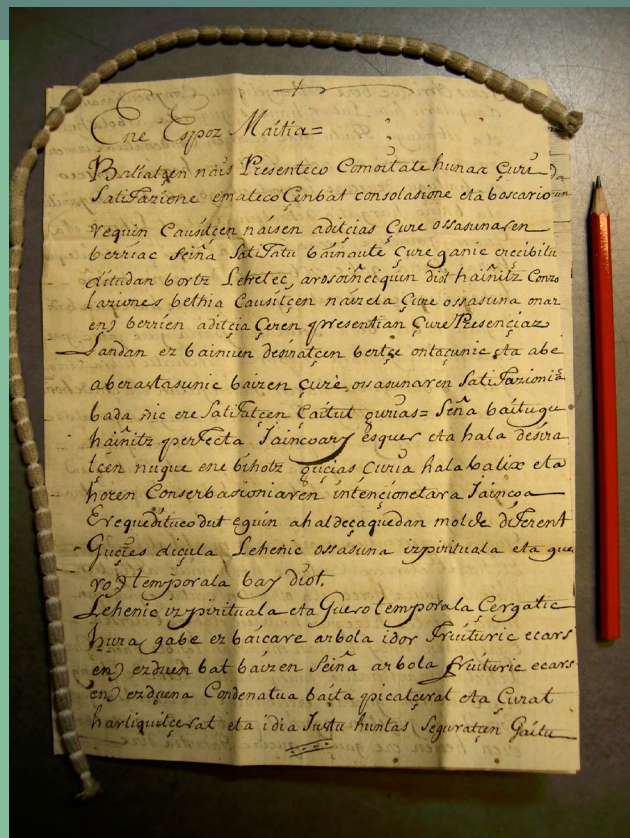 Ene Espoz Maitia=
Baliatçen nais Presenteco Comoitate hunaz Çuri
SatiFazione emateco Çenbat consolasione eta boscario
requin Causitçen náisen aditçias Çure ossasunaren
berriac Seiña SatiFatu báinauté Çure ganic erecibitu
ditudan bortz Letretec, arosoiñeiquin diot háinitz Conso
lasiones bethia Causitçen naizela Çure ossasuna onar
en berrien aditçia Çeren presentian Çure Presençiaz
Landan ez bainuen desiratçen bertçe ontaçunic eta abe
aberastasunic baizen Çure ossasunaren SatiFazionia
bada nic ere SatiFatçen Çaitut guçias= Seiña baitugu
háinitz perFecta Jaincoary esquer eta hala desira
tçen nuque ene bihotz guçias Curia hala balix eta
hoien Conserbasioniaren intençionetara Jaincoa
Erequeditucodut eguin ahaldeçaquedan molde diFerent
Guçies diçula Lehenic ossasuna izpirituala eta gue
ro temporala bay diot,
Lehenic izpirituala eta Guero temporala Çergatic
hura gabe ez báicare arbola idor Fruituric ecars
en ezduen bat báizen Seiña arbola fruituric ecars
en ezduena Condenatua baita picatçerat eta Çurat
harliquitçerat eta idia Justu huntas Seguratçen Gaitu